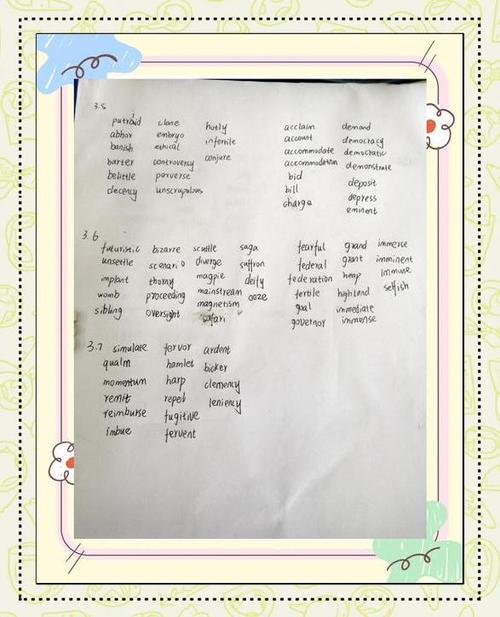 3.5
putraid clone hotly acclaim demand
abhor embryo infertile account democracy
banish ethical conjure accommodate democratic
barter controversy accommodation demonstrate
belittle perverse bid deposit
decency unscrupulous bill depress
charge eminent
3.6
futuristic bizarre scuttle saga fearful grand immerse
unsettle scenario diverge saffron federal grant imminent
implant thorny magpie deity federation heap immune
womb proceeding mainstream ooze fertile highland selfish
sibling oversight magnetism goal immediate
safari governor immense
3.7 simulate fervor ardent
qualm hamlet bicker
momentum harp clemency
remit repel leniency
reimburse fugitive
imbue fervent